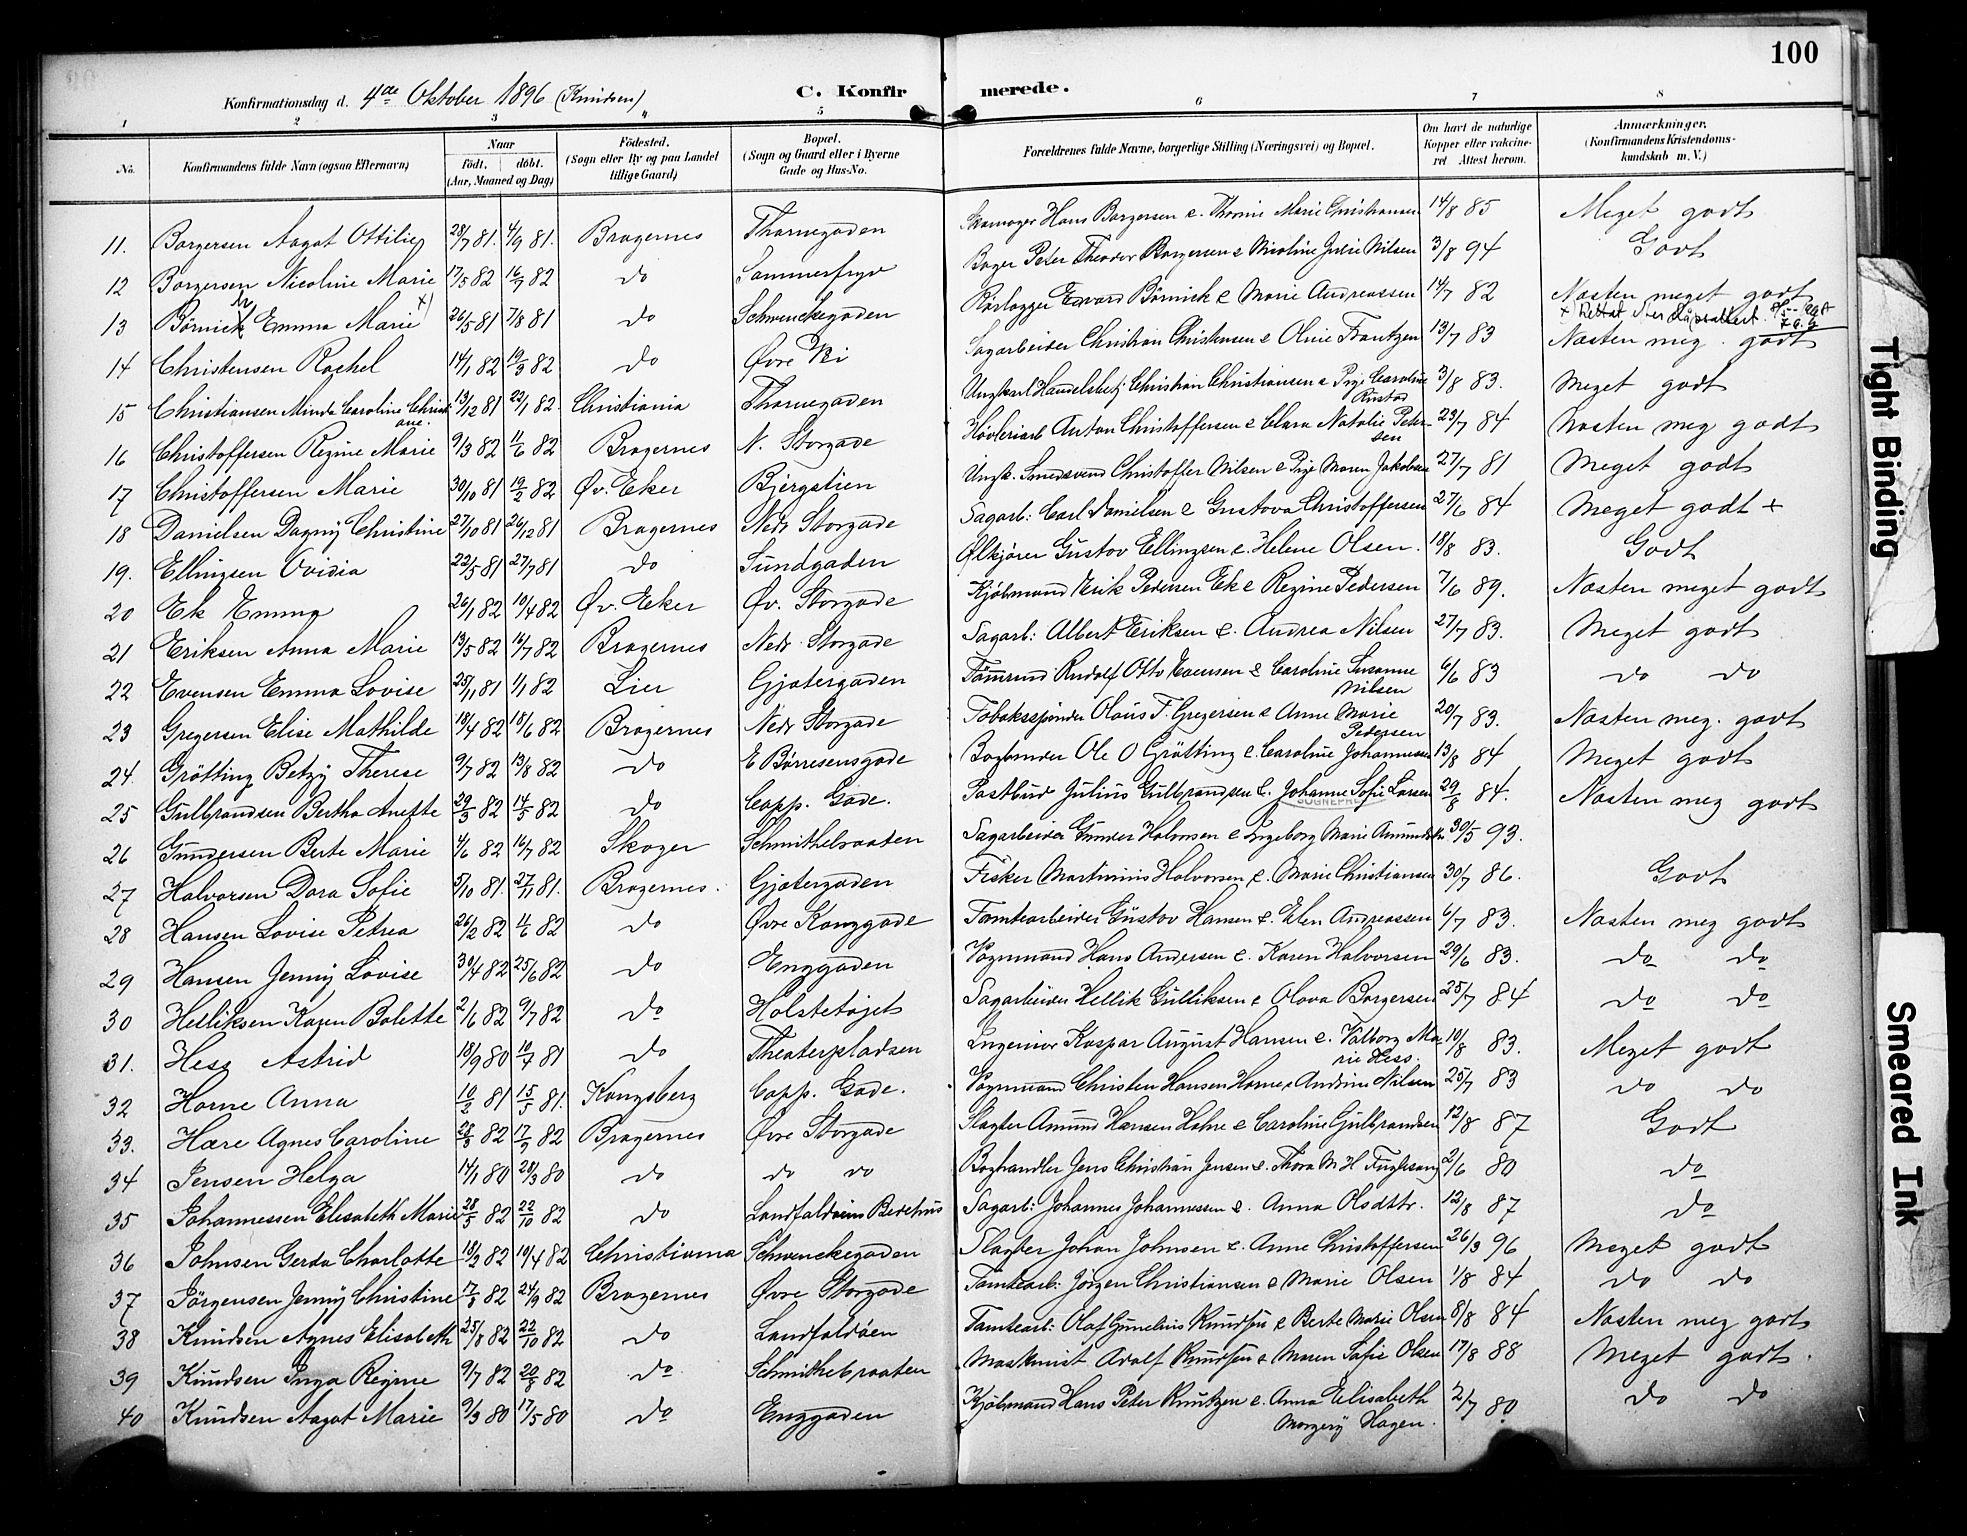 100
Konfirmationsdag d. 4de Oktober 1896 (Knudsen)
C. Konfirmerede.
1 2 3 4 5 6 7 8
No. Konfirmandens fulde Navn (ogsaa Efternavn) Naar födt. döbt. (Aar, Maaned og Dag) Födested. (Sogn eller By og paa Landet tillige Gaard) Bopæl. (Sogn og Gaard eller i Byerne Gade og Hus-No. Forældrenes fulde Navne, borgerlige Stilling (Næringsvei) og Bopæl. Om havt de naturlige Kopper eller vakcineret Attest herom. Anmærkninger. (Konfirmandens Kristendomskundskab m. V.)
11. Borgersen Aagot Ottilie 28/7 81. 4/9 81. Bragernes Thornegaden Hans Borgersen & Thorine Marie Christiansen 14/8 85 Meget godt
12 Borgersen Nicoline Marie 17/5 82 16/7 82 do Sommerfryd Bager Peter Theodor Borgersen & Nicoline Julie Nilsen 3/8 94 Godt
13 Börnick Emma Marie x) 26/5 81 7/8 81 do Schwenckegaden Rorlægger Edvard Börnick & Marie Andreassen 14/7 82 Næsten meget godt
14 Christensen Rachel 14/1 82 19/3 82 do Øvre Vei Sagarbeider Christian Christensen & Oline Frantzen 13/7 83 Næsten meg. godt
15 Christiansen Minda Caroline Christiane. 13/12 81 22/1 82 Christiania Thornegaden Ungkarl Handelsbetj. Christian Christiansen & Pige Caroline Rustad 3/8 83. Meget godt
16 Christoffersen Regine Marie 9/3 82 11/6 82 Bragernes N. Storgade Høvleriarb Anton Christoffersen & Clara Natalie Petersen 23/7 84 Næsten meg godt
17 Christoffersen Marie 30/10 81 19/2 82 Øv. Eker Bjergstien Ungk. Smedsvend Christoffer Nilsen & Pige Maren Jakobsen 27/7 81 Meget godt
18 Danielsen Dagny Christine 27/10 81 26/12 81 Bragernes Nedr Storgade Sagarb: Carl Danielsen & Gustava Christoffersen 27/6 84 Meget godt +
19. Ellingsen Ovidia 22/5 81 27/7 81 do Sundgaden Ølkjører Gustav Ellingsen & Helene Olsen. 18/8 83. Godt
20 Ek Emma 26/1 82 10/4 82 Øv. Eker Øv. Storgade Kjøbmand Erik Pedersen Ek & Regine Pedersen 7/6 89. Næsten meget godt
21 Eriksen Anna Marie 13/5 82 16/7 82 Bragernes Nedr Storgade Sagarb: Albert Eriksen & Andrea Nilsen 27/7 83. Meget godt
22 Evensen Emma Lovise 25/11 81 1/1 82 Lier Gjætergaden Rudolf Otto Evensen & Caroline Susanne Nilsen 6/6 83 do do
23 Gregersen Elise Mathilde 18/4 82 18/6 82 Bragernes Nedr Storgade Tobaksspinder Olaus T. Gregersen & Anne Marie Pedersen 20/7 83. Næsten meg. godt
24. Grötting Betzy Therese 9/7 82 13/8 82 do E Börresensgade Bogbinder Ole O Grötting & Caroline Johannessen 13/8 84 Meget godt
25 Gulbrandsen Bertha Anette 29/3 82 14/5 82 do Capp. Gade. Postbud Julius Gulbrandsen & Johanne Sofie Larsen 29/8 84. Næsten meg godt
26 Gundersen Berte Marie 4/6 82 16/7 82 Skoger Schmithebraaten Sagarbeider Gunder Halvorsen & Ingeborg Marie 30/5 93.
27 Halvorsen Dora Sofie 5/10 81. 27/11 81. Bragernes. Gjætergaden Fisker Martinius Halvorsen & Marie Christiansen 30/7 86. Godt
28 Hansen Lovise Petrea 26/2 82 11/6 82 do Øvre Konggade Tomtearbeider Gustav Hansen & Elen Andreassen 6/7 83. Næsten meg godt
29 Hansen Jenny Lovise 30/4 82 25/6 82 do Enggaden Vognmand Hans Andersen & Karen Halvorsen 29/6 83. do do
30 Helliksen Karen Bolette 2/6 82 9/7 82 do Holstetøjet Sagarbeider Hellik Gulliksen & Olava Borgersen 25/7 84 do do
31. Hess Astrid 18/9 80 10/7 81 do Theaterpladsen Ingeniør Kaspar August Hansen & Valborg Marie Hess. 10/8 83. Meget godt
32 Horne Anna 10/2 81 15/5 81. Kongsberg Capp. Gade. Vognmand Christen Hansen Horne & Andrine Nilsen 25/7 83 do do
33. Hære Agnes Caroline 28/3 82 17/9 82 Bragernes Øvre Storgade Slagter Amund Hansen Hære & Caroline Gulbrandsen 12/8 87 Godt
34 Jensen Helga 14/1 80 28/3 80 do do do Boghandler Jens Christian Jensen & Thora M H Fuglesang 2/6 80 do
35 Johannessen Elisabeth Marie 28/5 82 22/10 82 do Landfaldøiens Bedehus Sagarb: Johannes Johannessen & Anna Olsdttr. 12/8 87 do
36 Johnsen Gerda Charlotte 18/2 82 10/4 82 Christiania Schwenckegaden Slagter Johan Johnsen & Anne Christoffersen 26/3 96 Meget godt
37 Jörgensen Jenny Christine 17/3 82 24/9 82 Bragernes Øvre Storgade Tomtearb: Jörgen Christiansen & Marie Olsen 1/8 84 do do
38 Knudsen Agnes Elisabeth 25/8 82 22/10 82 do Landfaldøen Tomtearb: Olaf Gunelius Knudsen & Berte Marie Olsen 8/8 84 Næsten meg godt
39 Knudsen Inga Regine 9/7 82 20/8 82 do Schmithebraaten Maskinist Adolf Knudsen & Maren Sofie Olsen 17/8 88 Meget godt.
40 Knudsen Aagot Marie 9/3 80 17/5 80 do Enggaden Kjöbmand Hans Peter Knutzen & Anna Elisabeth Margery Hagen. 2/7 80 do do
SOGNEPRES
Tight Binding
Smeared Ink